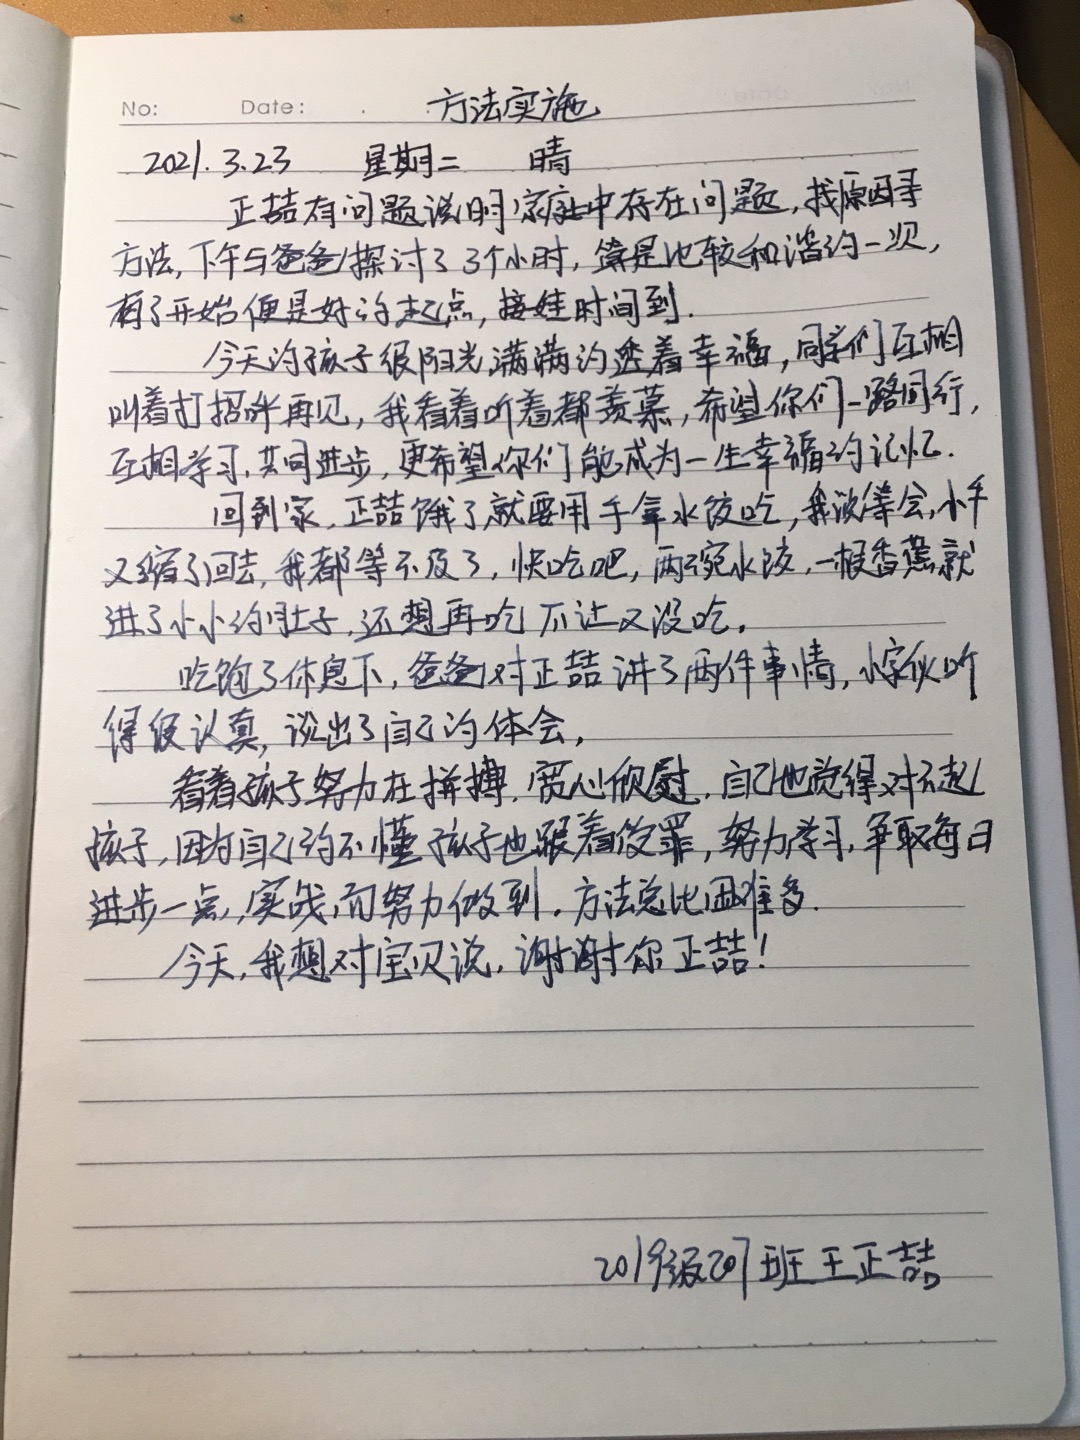 No: Date: 方法实施
2021.3.23 星期二 晴
正喆有问题说明家庭中存在问题,找原因寻
方法,下午与爸爸探讨了3个小时,算是比较和谐的一次,
有了开始便是好的起点,接娃时间到.
今天的孩子很阳光,满满的透着幸福,同学们互相
叫着打招呼再见,我看着听着都羡慕,希望你们一路同行,
互相学习,共同进步,更希望你们能成为一生幸福的记忆.
回到家,正喆饿了就要用手拿水饺吃,我说等会,小手
又缩了回去,我都等不及了,快吃吧,两碗水饺,一根香蕉就
进了小小的肚子,还想再吃 不让又没吃。
吃饱了休息下,爸爸对正喆讲了两件事情,小家伙听
得很认真,说出了自己的体会,
看着孩子努力在拼搏,贾心欣慰,自己也觉得对不起
孩子,因为自己的不懂孩子也跟着受罪,努力学习,争取每日
进步一点,实战,而努力做到,方法总比困难多.
今天,我想对宝贝说,谢谢你正喆!
2019级207班王正喆